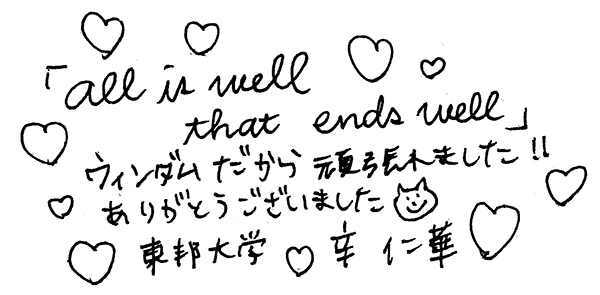 「all is well
that ends well」
ウィンダムだから 頑張れました!!
ありがとうございました
東邦大学 辛 仁華